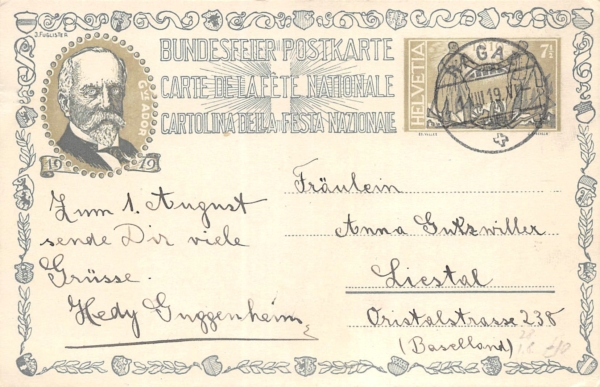 J. FUGLISTER
BUNDESFEIER POSTKARTE
CARTE DE LA FÊTE NATIONALE
CARTOLINA DELLA FESTA NAZIONALE
G. ADOR
1919
HELVETIA
7½
RAGAZ
1.VIII.19.VI
Zum 1. August
sende Dir viele
Grüsse.
Hedy Guggenheim
Fräulein
Anna Gutzwiller
Liestal
Oristalstrasse 238
(Baselland)